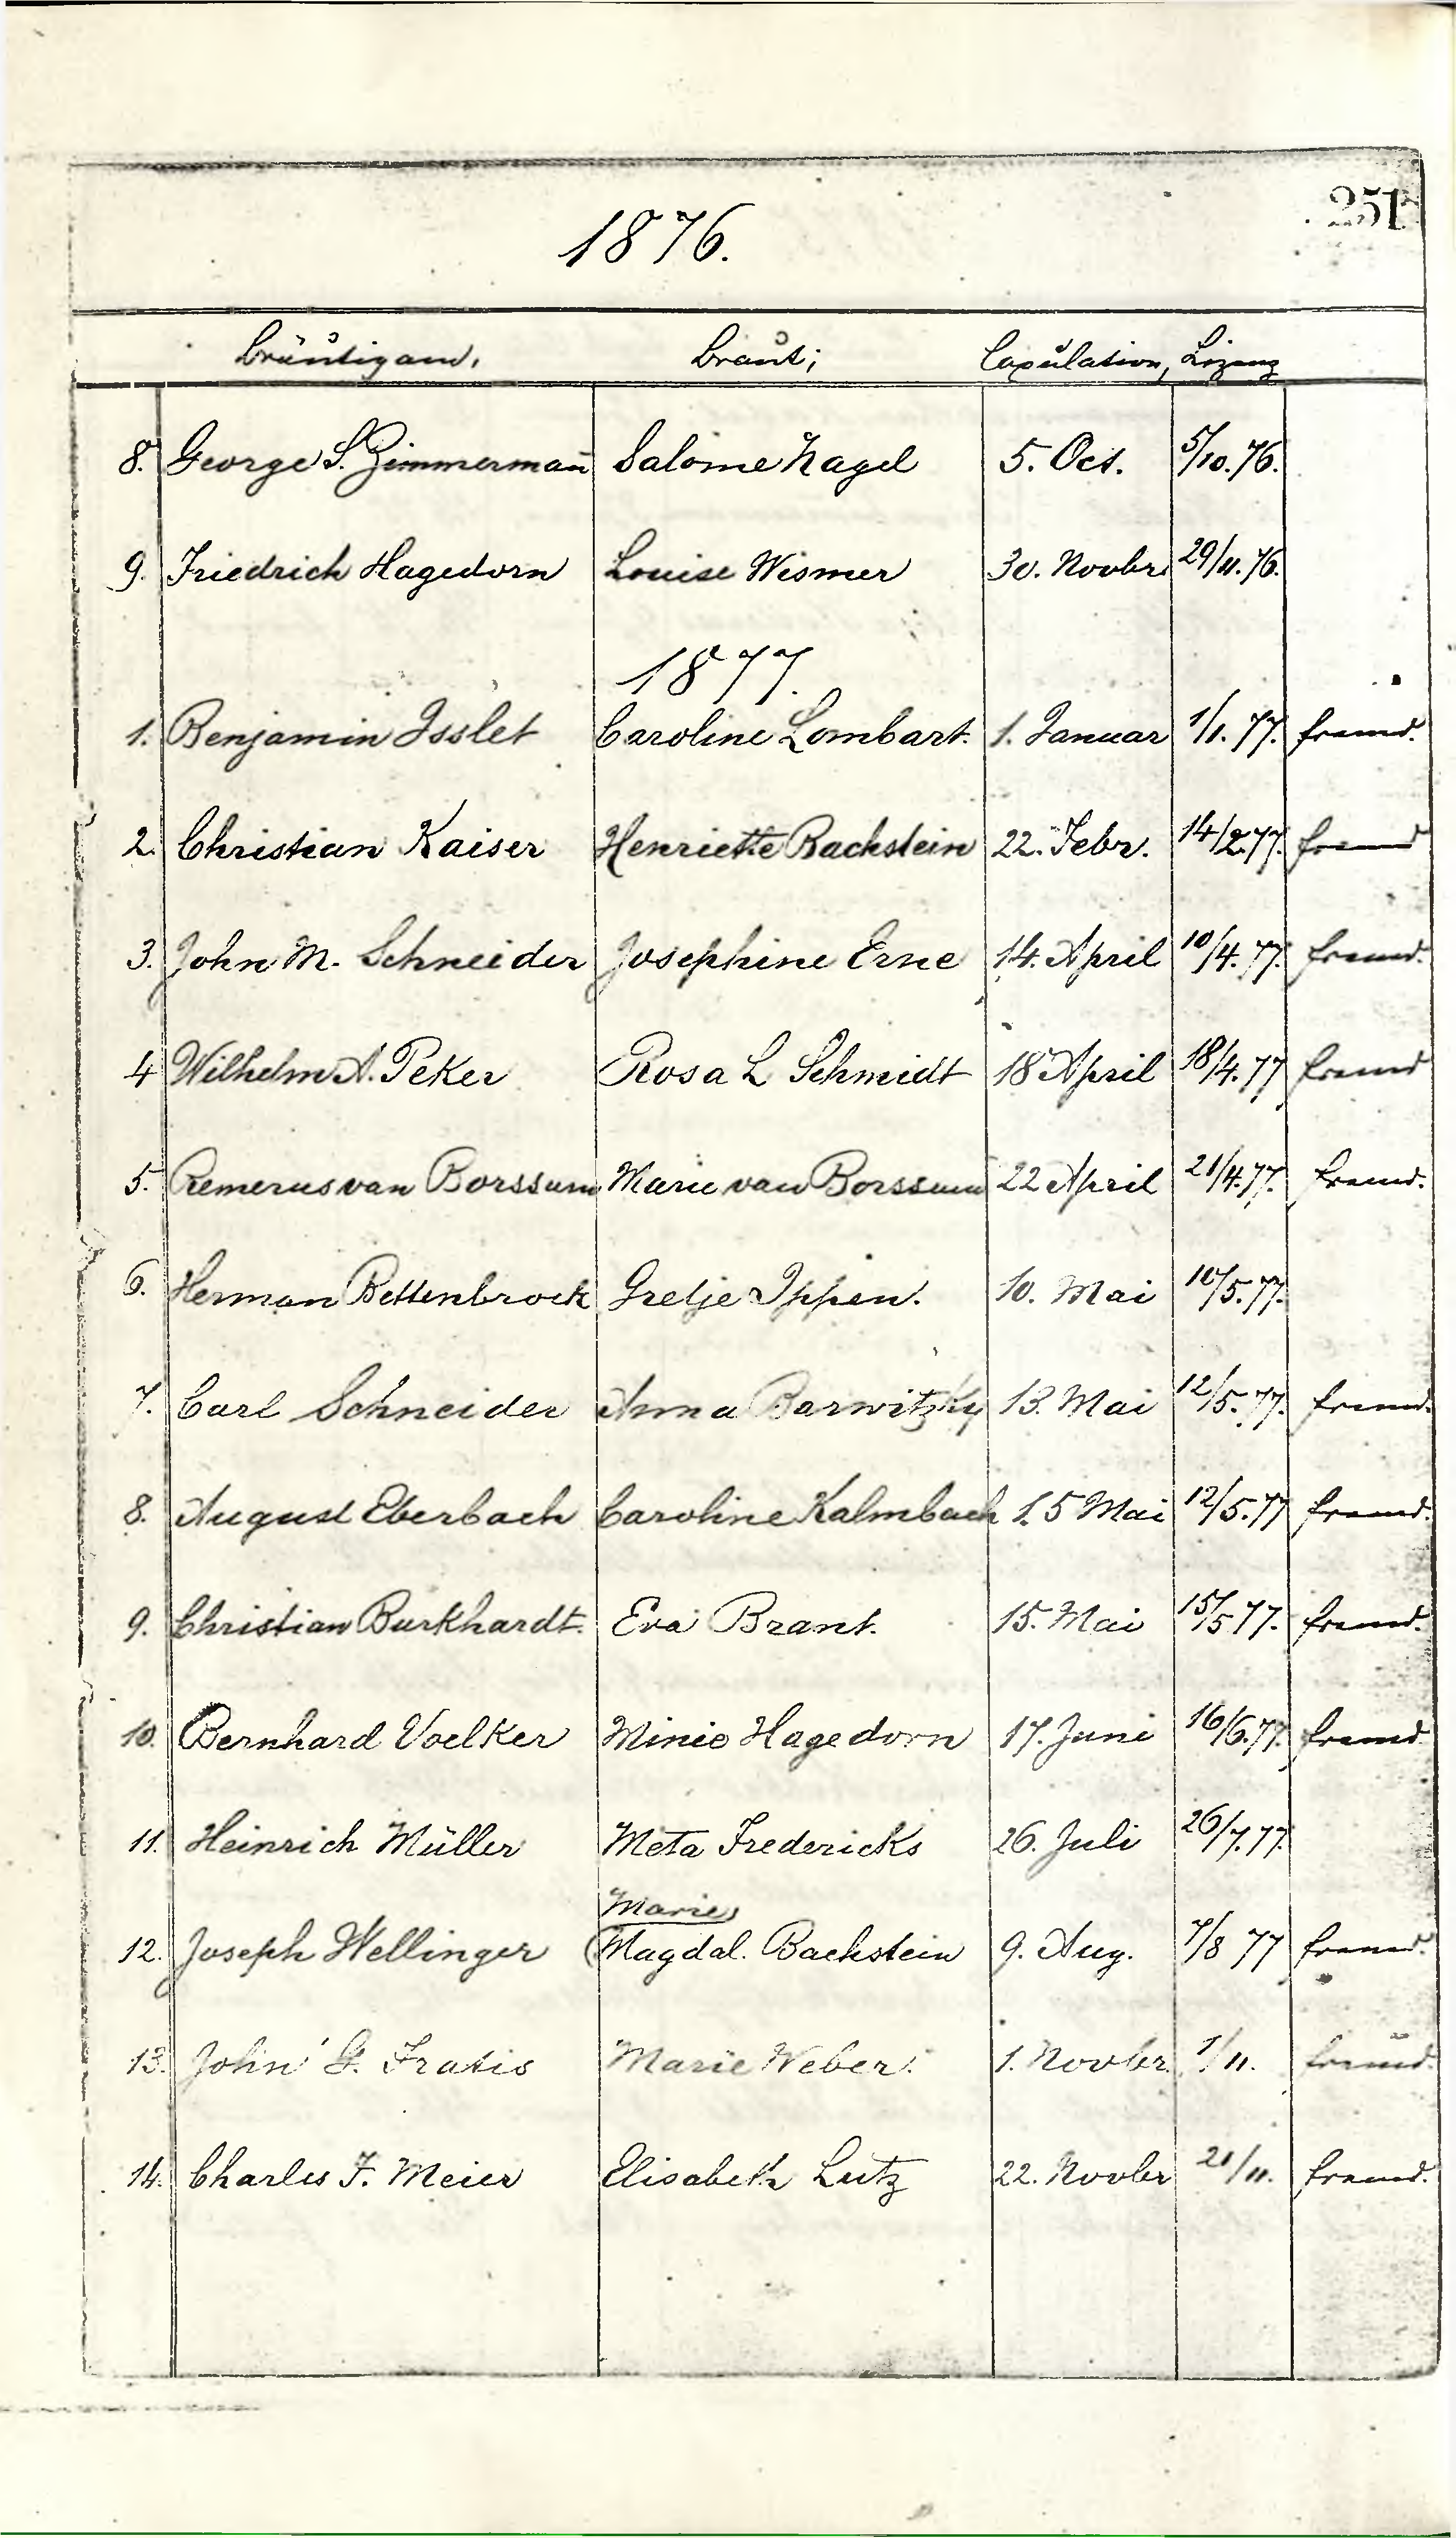 251
1876.
Bräutigam, Braut, Copulation, Lizenz
8. George S. Zimmermañ Salome Nagel 5. Oct. 5/10.76.
9. Friedrich Hagedorn Louise Wismer 30. Novbr. 29/11.76.
1877.
1. Benjamin Isslet Caroline Lombart. 1. Januar 1/1.77. fremd.
2. Christian Kaiser Henriette Bachstein 22. Febr. 14/2.77. fremd
3. John M. Schneider Josephine Erne 14. April 10/4.77. fremd.
4 Wilhelm A. Peker Rosa L Schmidt 18 April 18/4.77 fremd
5. Remerus van Borssum Marie van Borssum 22 April 21/4.77. fremd.
6. Herman Bettenbrock Gretje Ippen. 10. Mai 10/5.77.
7. Carl Schneider Anna Barwitzky 13. Mai 12/5.77. fremd.
8. August Eberbach Caroline Kalmbach 15 Mai 12/5.77 fremd.
9. Christian Burkhardt. Eva Brant. 15. Mai 15/5 77. fremd.
10. Bernhard Voelker Minie Hagedorn 17. Juni 16/6.77. fremd
11. Heinrich Müller Meta Fredericks 26. Juli 26/7.77.
Marie
12. Joseph Wellinger (Magdal. Bachstein 9. Aug. 7/8 77 fremd.
13. John G. Fratis Marie Weber. 1. Novbr. 1/11. fremd.
14. Charles F. Meier Elisabeth Lutz 22. Novbr 21/11. fremd.